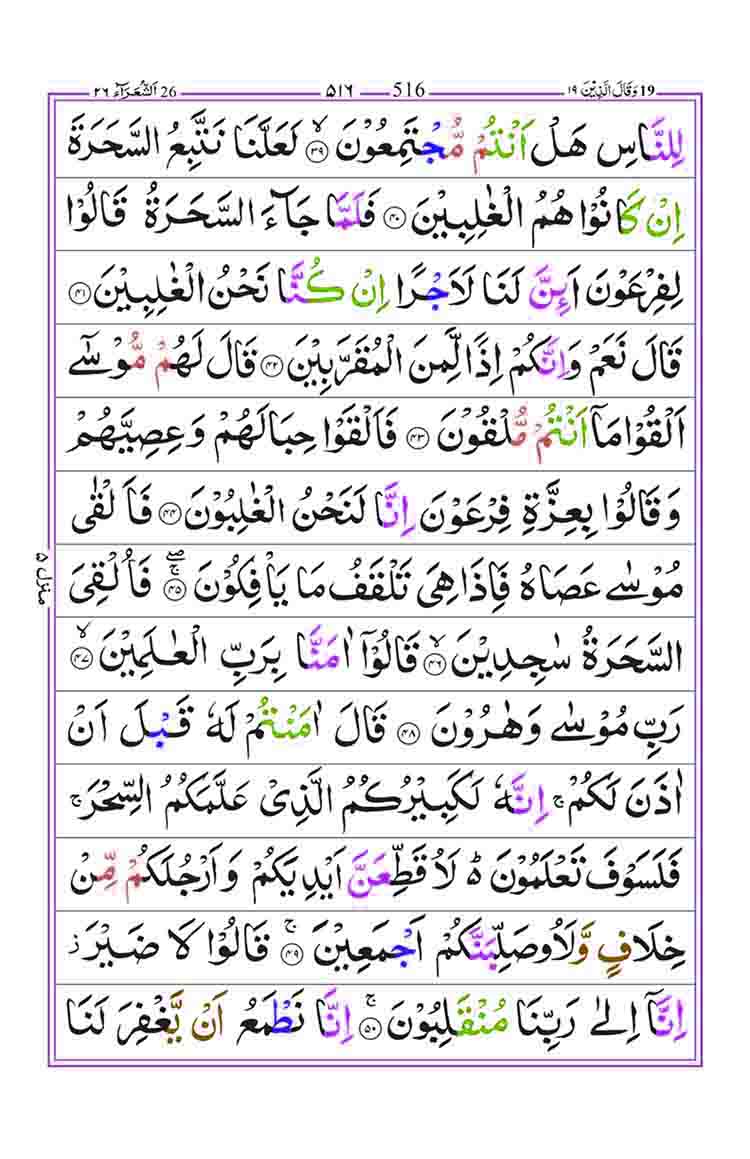 ١٩ وَقَالَ الَّذِیْنَ 19 516 ۵۱۶ 26 اَلشُّعَرَآء ۲۶
لِلنَّاسِ هَلْ اَنْتُمْ مُّجْتَمِعُوْنَ ۙ﴿۳۹﴾ لَعَلَّنَا نَتَّبِعُ السَّحَرَةَ
اِنْ كَانُوْا هُمُ الْغٰلِبِیْنَ ﴿۴۰﴾ فَلَمَّا جَآءَ السَّحَرَةُ قَالُوْا
لِفِرْعَوْنَ اَئِنَّ لَنَا لَاَجْرًا اِنْ كُنَّا نَحْنُ الْغٰلِبِیْنَ ﴿۴۱﴾
قَالَ نَعَمْ وَاِنَّكُمْ اِذًا لَّمِنَ الْمُقَرَّبِیْنَ ﴿۴۲﴾ قَالَ لَهُمْ مُّوْسٰۤی
اَلْقُوْا مَاۤ اَنْتُمْ مُّلْقُوْنَ ﴿۴۳﴾ فَاَلْقَوْا حِبَالَهُمْ وَعِصِیَّهُمْ
وَقَالُوْا بِعِزَّةِ فِرْعَوْنَ اِنَّا لَنَحْنُ الْغٰلِبُوْنَ ﴿۴۴﴾ فَاَلْقٰی
مُوْسٰی عَصَاهُ فَاِذَا هِیَ تَلْقَفُ مَا یَاْفِكُوْنَ ۚۖ﴿۴۵﴾ فَاُلْقِیَ
السَّحَرَةُ سٰجِدِیْنَ ۙ﴿۴۶﴾ قَالُوْۤا اٰمَنَّا بِرَبِّ الْعٰلَمِیْنَ ۙ﴿۴۷﴾
رَبِّ مُوْسٰی وَهٰرُوْنَ ﴿۴۸﴾ قَالَ اٰمَنْتُمْ لَهٗ قَبْلَ اَنْ
اٰذَنَ لَكُمْ ۚ اِنَّهٗ لَكَبِیْرُكُمُ الَّذِیْ عَلَّمَكُمُ السِّحْرَ ۚ
فَلَسَوْفَ تَعْلَمُوْنَ ؕ لَاُقَطِّعَنَّ اَیْدِیَكُمْ وَاَرْجُلَكُمْ مِّنْ
خِلَافٍ وَّلَاُوصَلِّبَنَّكُمْ اَجْمَعِیْنَ ۚ﴿۴۹﴾ قَالُوْا لَا ضَیْرَ ؗ
اِنَّاۤ اِلٰی رَبِّنَا مُنْقَلِبُوْنَ ۚ﴿۵۰﴾ اِنَّا نَطْمَعُ اَنْ یَّغْفِرَ لَنَا
منزل ۵